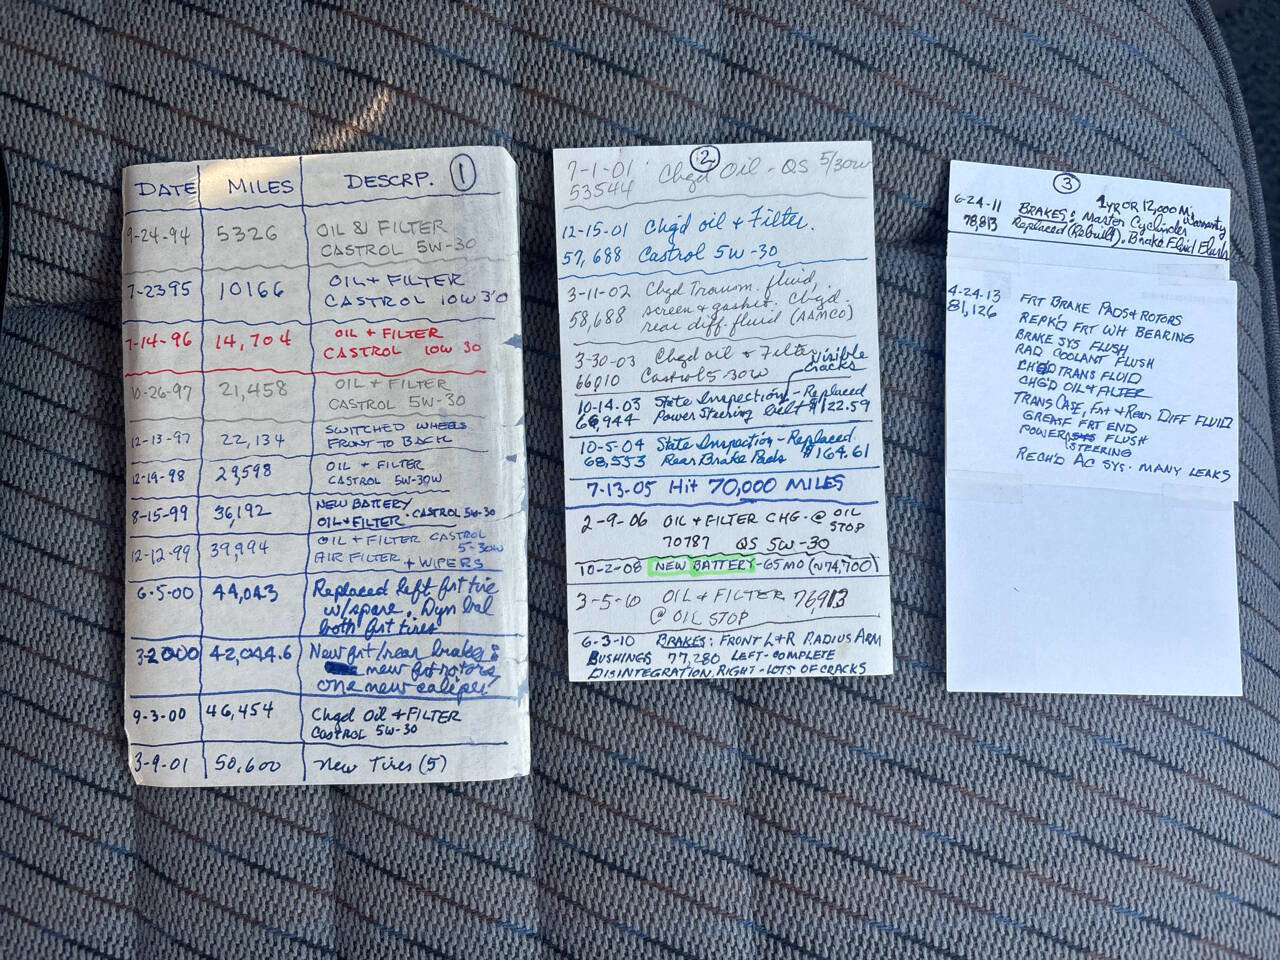 1
DATE MILES DESCRP.
9-24-94 5326 OIL & FILTER
CASTROL 5W-30
7-2395 10166 OIL + FILTER
CASTROL 10W 30
7-14-96 14,704 OIL + FILTER
CASTROL 10W 30
10-26-97 21,458 OIL + FILTER
CASTROL 5W-30
12-13-97 22,134 SWITCHED WHEELS
FRONT TO BACK
12-19-98 29,598 OIL + FILTER
CASTROL 5W-30W
8-15-99 36,192 NEW BATTERY
OIL+FILTER. CASTROL 5W-30
12-12-99 39,994 OIL + FILTER CASTROL
5-30W
AIR FILTER + WIPERS
6-5-00 44,043 Replaced left frt tire
w/spare. Dyn bal
both frt tires
3-2000 42,044.6 New frt/rear brakes &
new frt rotors
one new caliper
9-3-00 46,454 Chgd Oil + FILTER
CASTROL 5W-30
3-9-01 50,600 New Tires (5)
2
7-1-01 Chgd Oil - QS 5/30W
53544
12-15-01 Chgd oil + Filter.
57,688 Castrol 5W-30
3-11-02 Chgd Transm. fluid,
58,688 screen & gasket. Chgd.
rear diff. fluid (AAMCO)
3-30-03 Chgd oil + Filter
66010 Castrol 5-30W
visible
cracks
10-14.03 State Inspection - Replaced
66,944 Power Steering belt $122.59
10-5-04 State Inspection - Replaced
68,553 Rear Brake Pads $164.61
7-13-05 Hit 70,000 MILES
2-9-06 OIL + FILTER CHG. @ OIL
STOP
70787 QS 5W-30
10-2-08 NEW BATTERY - 65 MO (~74,700)
3-5-10 OIL + FILTER 76913
@ OIL STOP
6-3-10 BRAKES: FRONT L+R RADIUS ARM
BUSHINGS 77,280 LEFT-COMPLETE
DISINTEGRATION, RIGHT-LOTS OF CRACKS
3
1 YR OR 12,000 Mi.
Warranty
6-24-11 BRAKES: Master Cyclinder
78,813 Replaced (Rebuilt), Brake Fluid Flush
4-24.13 FRT BRAKE PADS+ ROTORS
81,126 REPK'D FRT WH BEARING
BRAKE SYS FLUSH
RAD COOLANT FLUSH
CHGD TRANS FLUID
CHG'D OIL & FILTER
TRANS CASE, Frt + Rear DIFF FLUID
GREASE FRT END
POWER FLUSH
STEERING
RECH'D AC SYS. MANY LEAKS